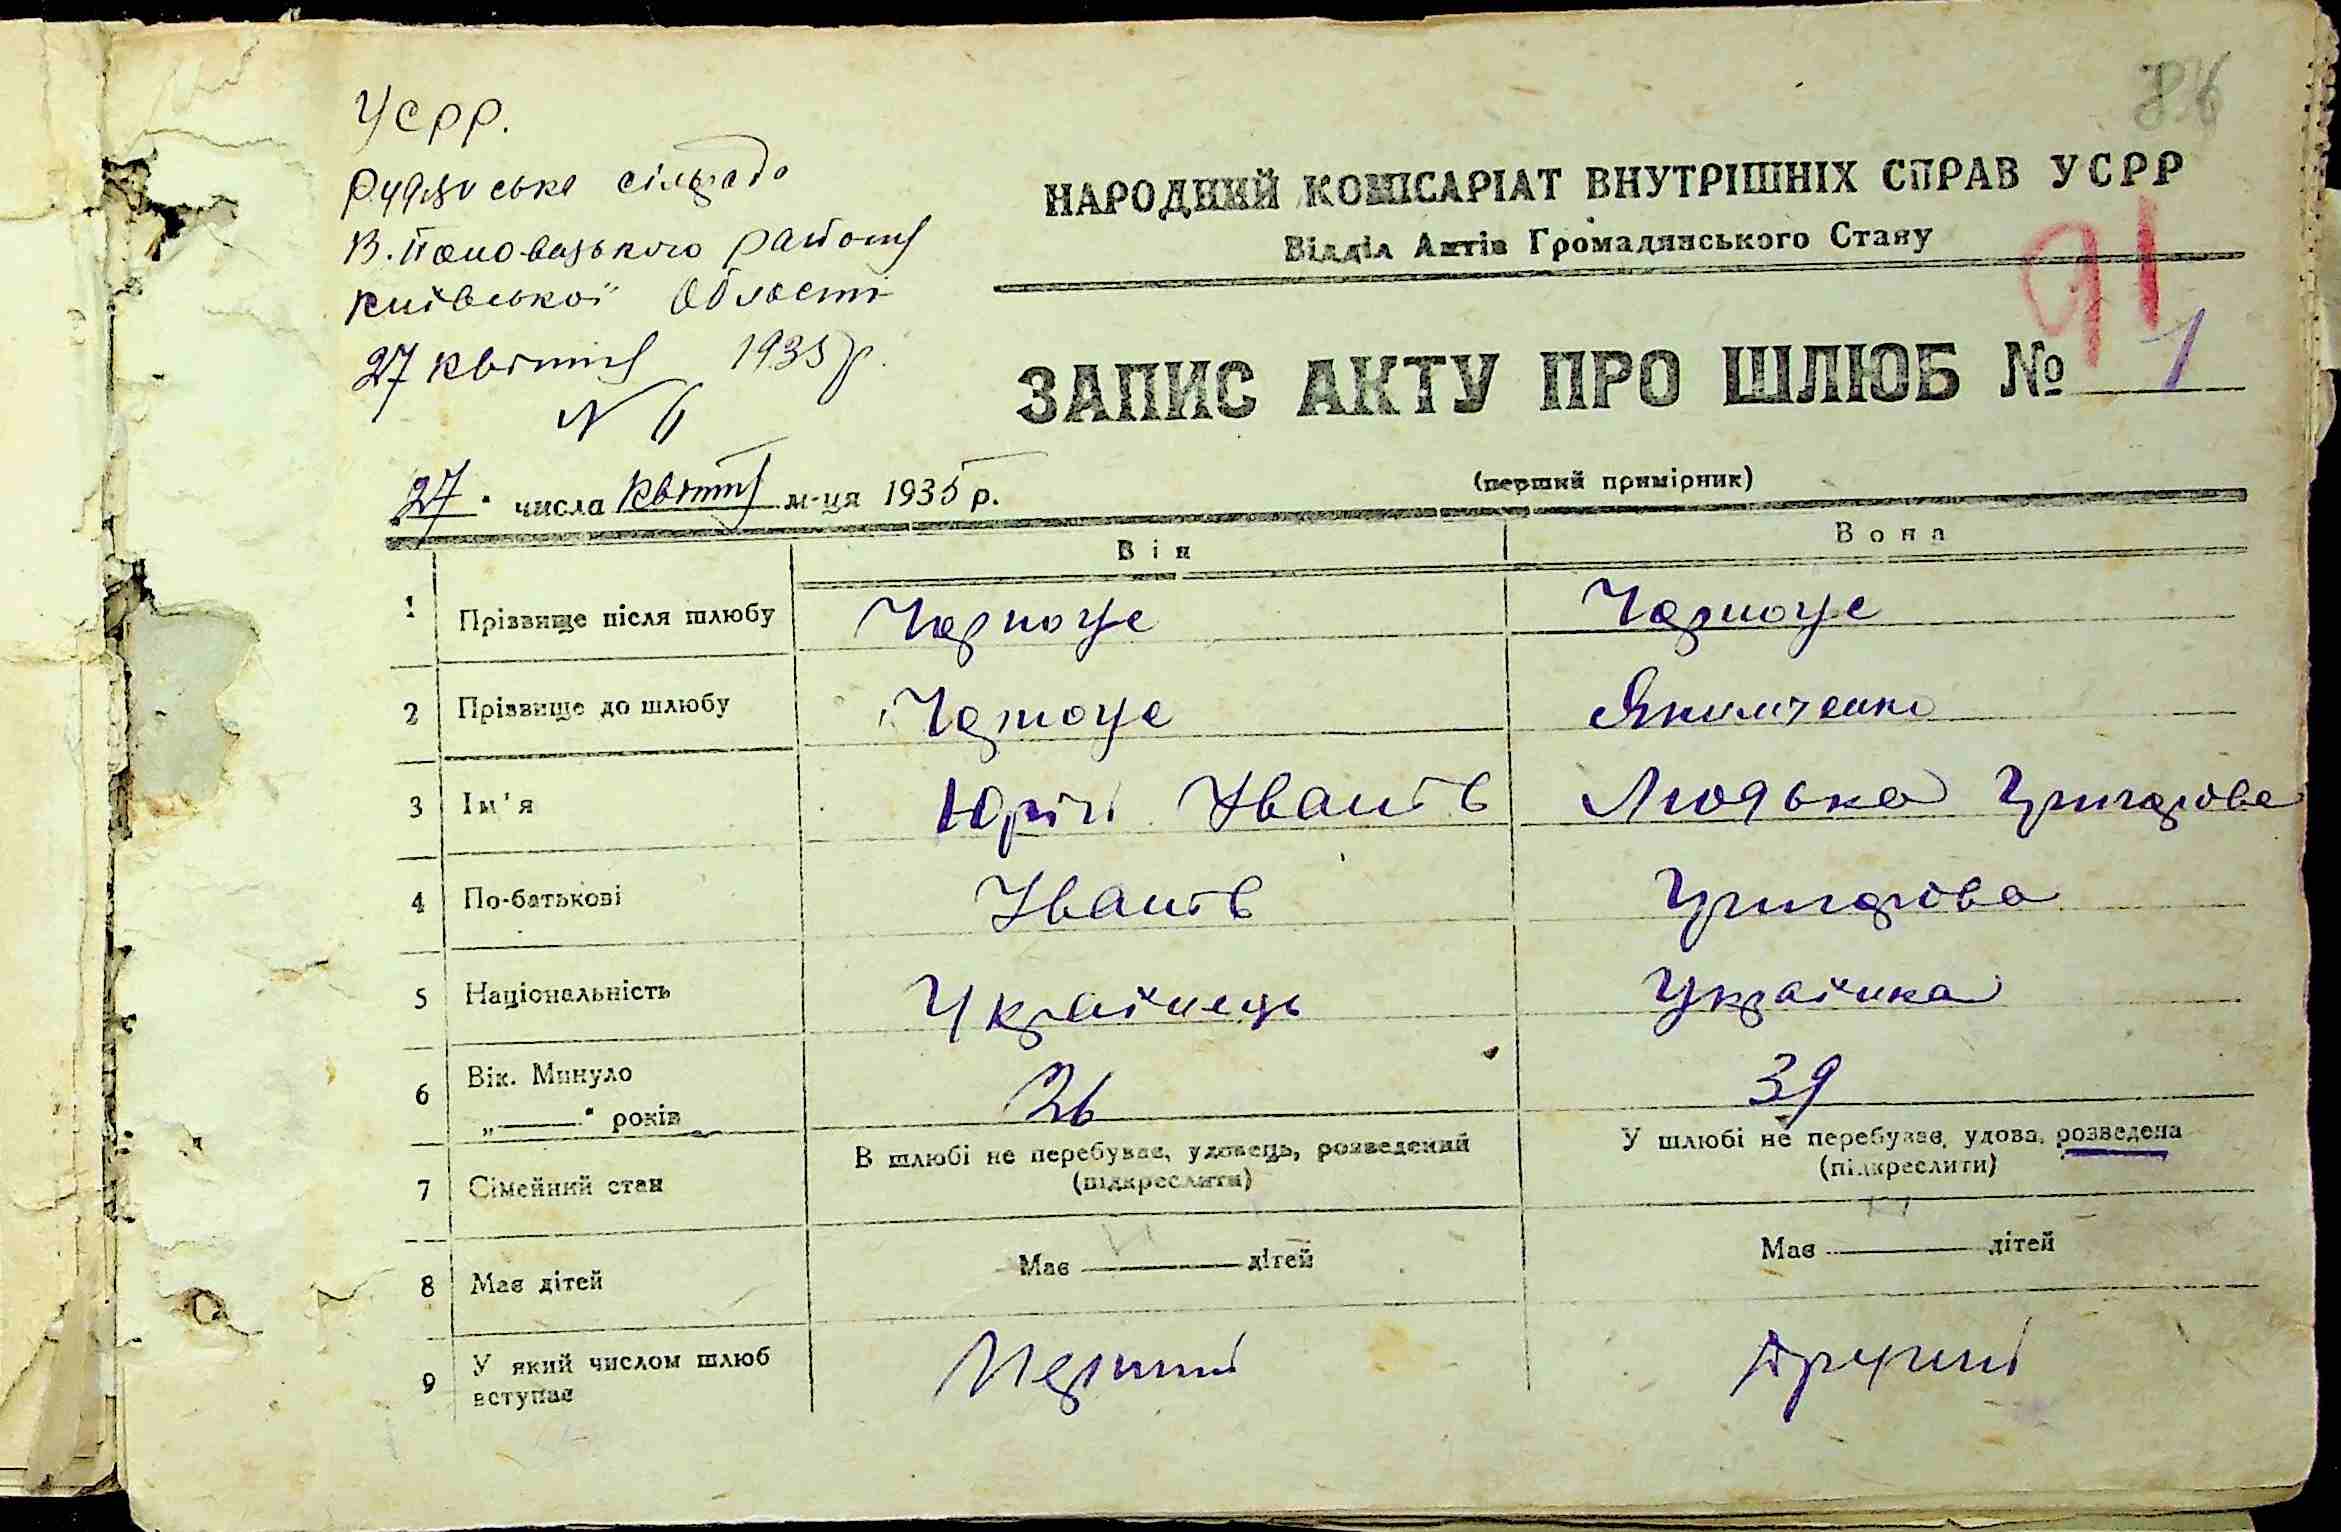 УСРР.
86
Рудянська сільрада
НАРОДНИЙ КОМІСАРІАТ ВНУТРІШНІХ СПРАВ УСРР
Відділ Актів Громадянського Стану
района
Київської області
91
27 квітня 1935 р.
ЗАПИС АКТУ ПРО ШЛЮБ № 1
N 6
(перший примірник)
27 числа квітня м-ця 1935 р.
Він Вона
1 Прізвище після шлюбу Чорноус Чорноус
2 Прізвище до шлюбу Чорноус Якимченко
3 Ім'я Юрій Іванів Людька Григорова
4 По-батькові Іванів Григорова
5 Національність Українець Українка
6 Вік. Минуло
„——" років 26 39
7 Сімейний стан В шлюбі не перебуває, удовець, розведений (підкреслити) У шлюбі не перебуває, удова, розведена (підкреслити)
8 Має дітей Має —— дітей Має —— дітей
9 У який числом шлюб вступає Перший Другий